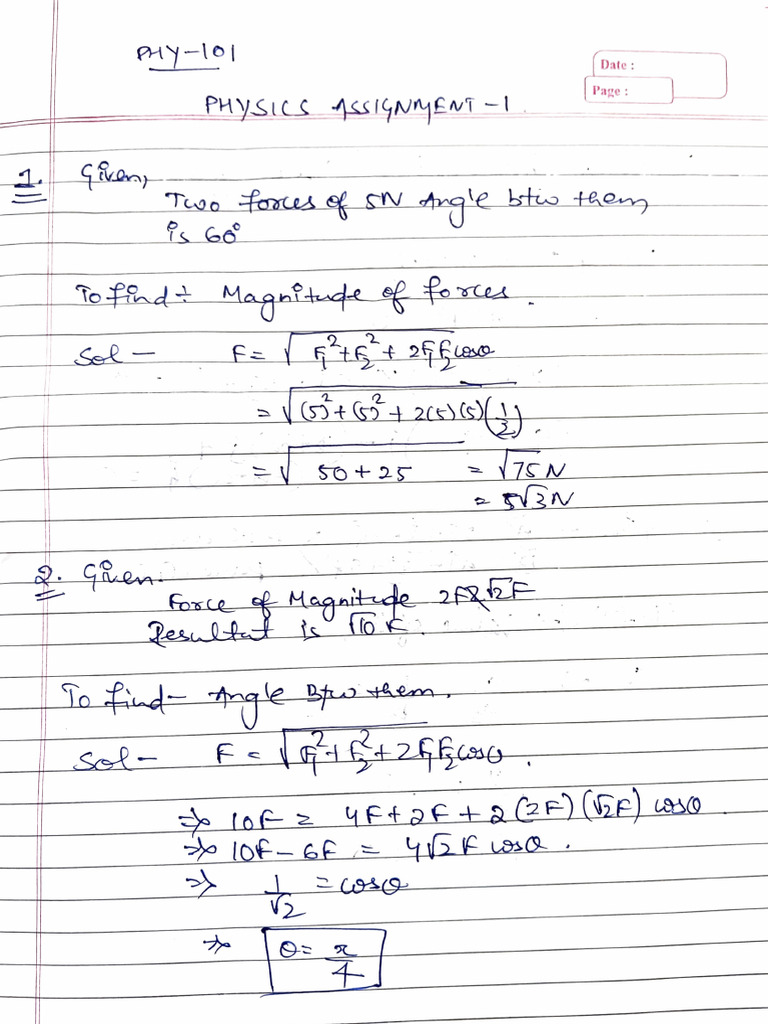 PHY-101
Date :
Page :
PHYSICS ASSIGNMENT-1
1. Given,
Two forces of 5N Angle btw them,
is 60°
To find ÷ Magnitude of forces.
Sol - F = √(F₁² + F₂² + 2F₁F₂cosθ)
= √((5)² + (5)² + 2(5)(5)(1/2)).
= √(50 + 25) = √75 N
= 5√3 N
2. Given.
Force of Magnitude 2F & √2F
Resultat is √10 F.
To find - Angle Btw them.
Sol - F = √(F₁² + F₂² + 2F₁F₂cosθ).
⇒ 10F = 4F + 2F + 2(2F)(√2F) cosθ
⇒ 10F - 6F = 4√2 F cosθ.
⇒ 1/√2 = cosθ
⇒ θ = π/4